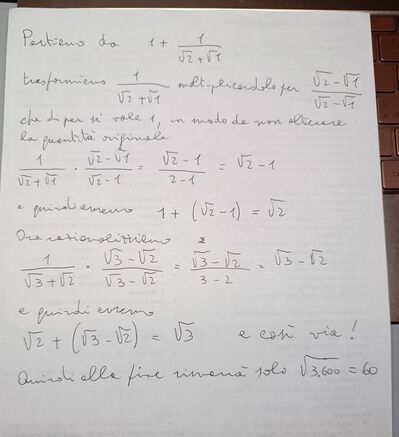 Partiamo da 1 + 1/(√2+√1)
trasformiamo 1/(√2+√1) moltiplicandolo per (√2-√1)/(√2-√1)
che di per sé vale 1, in modo da non alterare
la quantità originale
1/(√2+√1) · (√2-√1)/(√2-1) = (√2-1)/(2-1) = √2-1
e quindi avremo 1 + (√2-1) = √2
Ora razionalizziamo
1/(√3+√2) · (√3-√2)/(√3-√2) = (√3-√2)/(3-2) = √3-√2
e quindi avremo
√2 + (√3-√2) = √3 e così via!
Quindi alla fine rimarrà solo √3.600 = 60